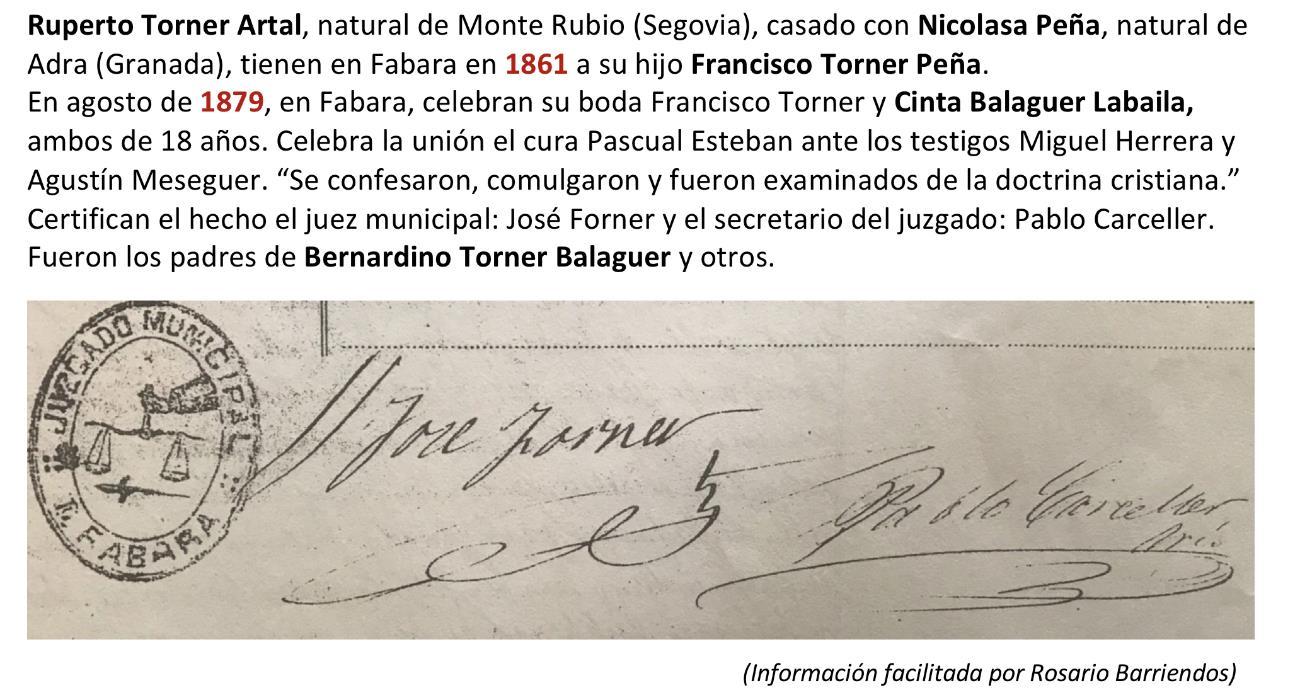 Ruperto Torner Artal, natural de Monte Rubio (Segovia), casado con Nicolasa Peña, natural de
Adra (Granada), tienen en Fabara en 1861 a su hijo Francisco Torner Peña.
En agosto de 1879, en Fabara, celebran su boda Francisco Torner y Cinta Balaguer Labaila,
ambos de 18 años. Celebra la unión el cura Pascual Esteban ante los testigos Miguel Herrera y
Agustín Meseguer. “Se confesaron, comulgaron y fueron examinados de la doctrina cristiana.”
Certifican el hecho el juez municipal: José Forner y el secretario del juzgado: Pablo Carceller.
Fueron los padres de Bernardino Torner Balaguer y otros.
JUZGADO MUNICIPAL
FABARA
Jose Forner
Pablo Carceller
(Información facilitada por Rosario Barriendos)